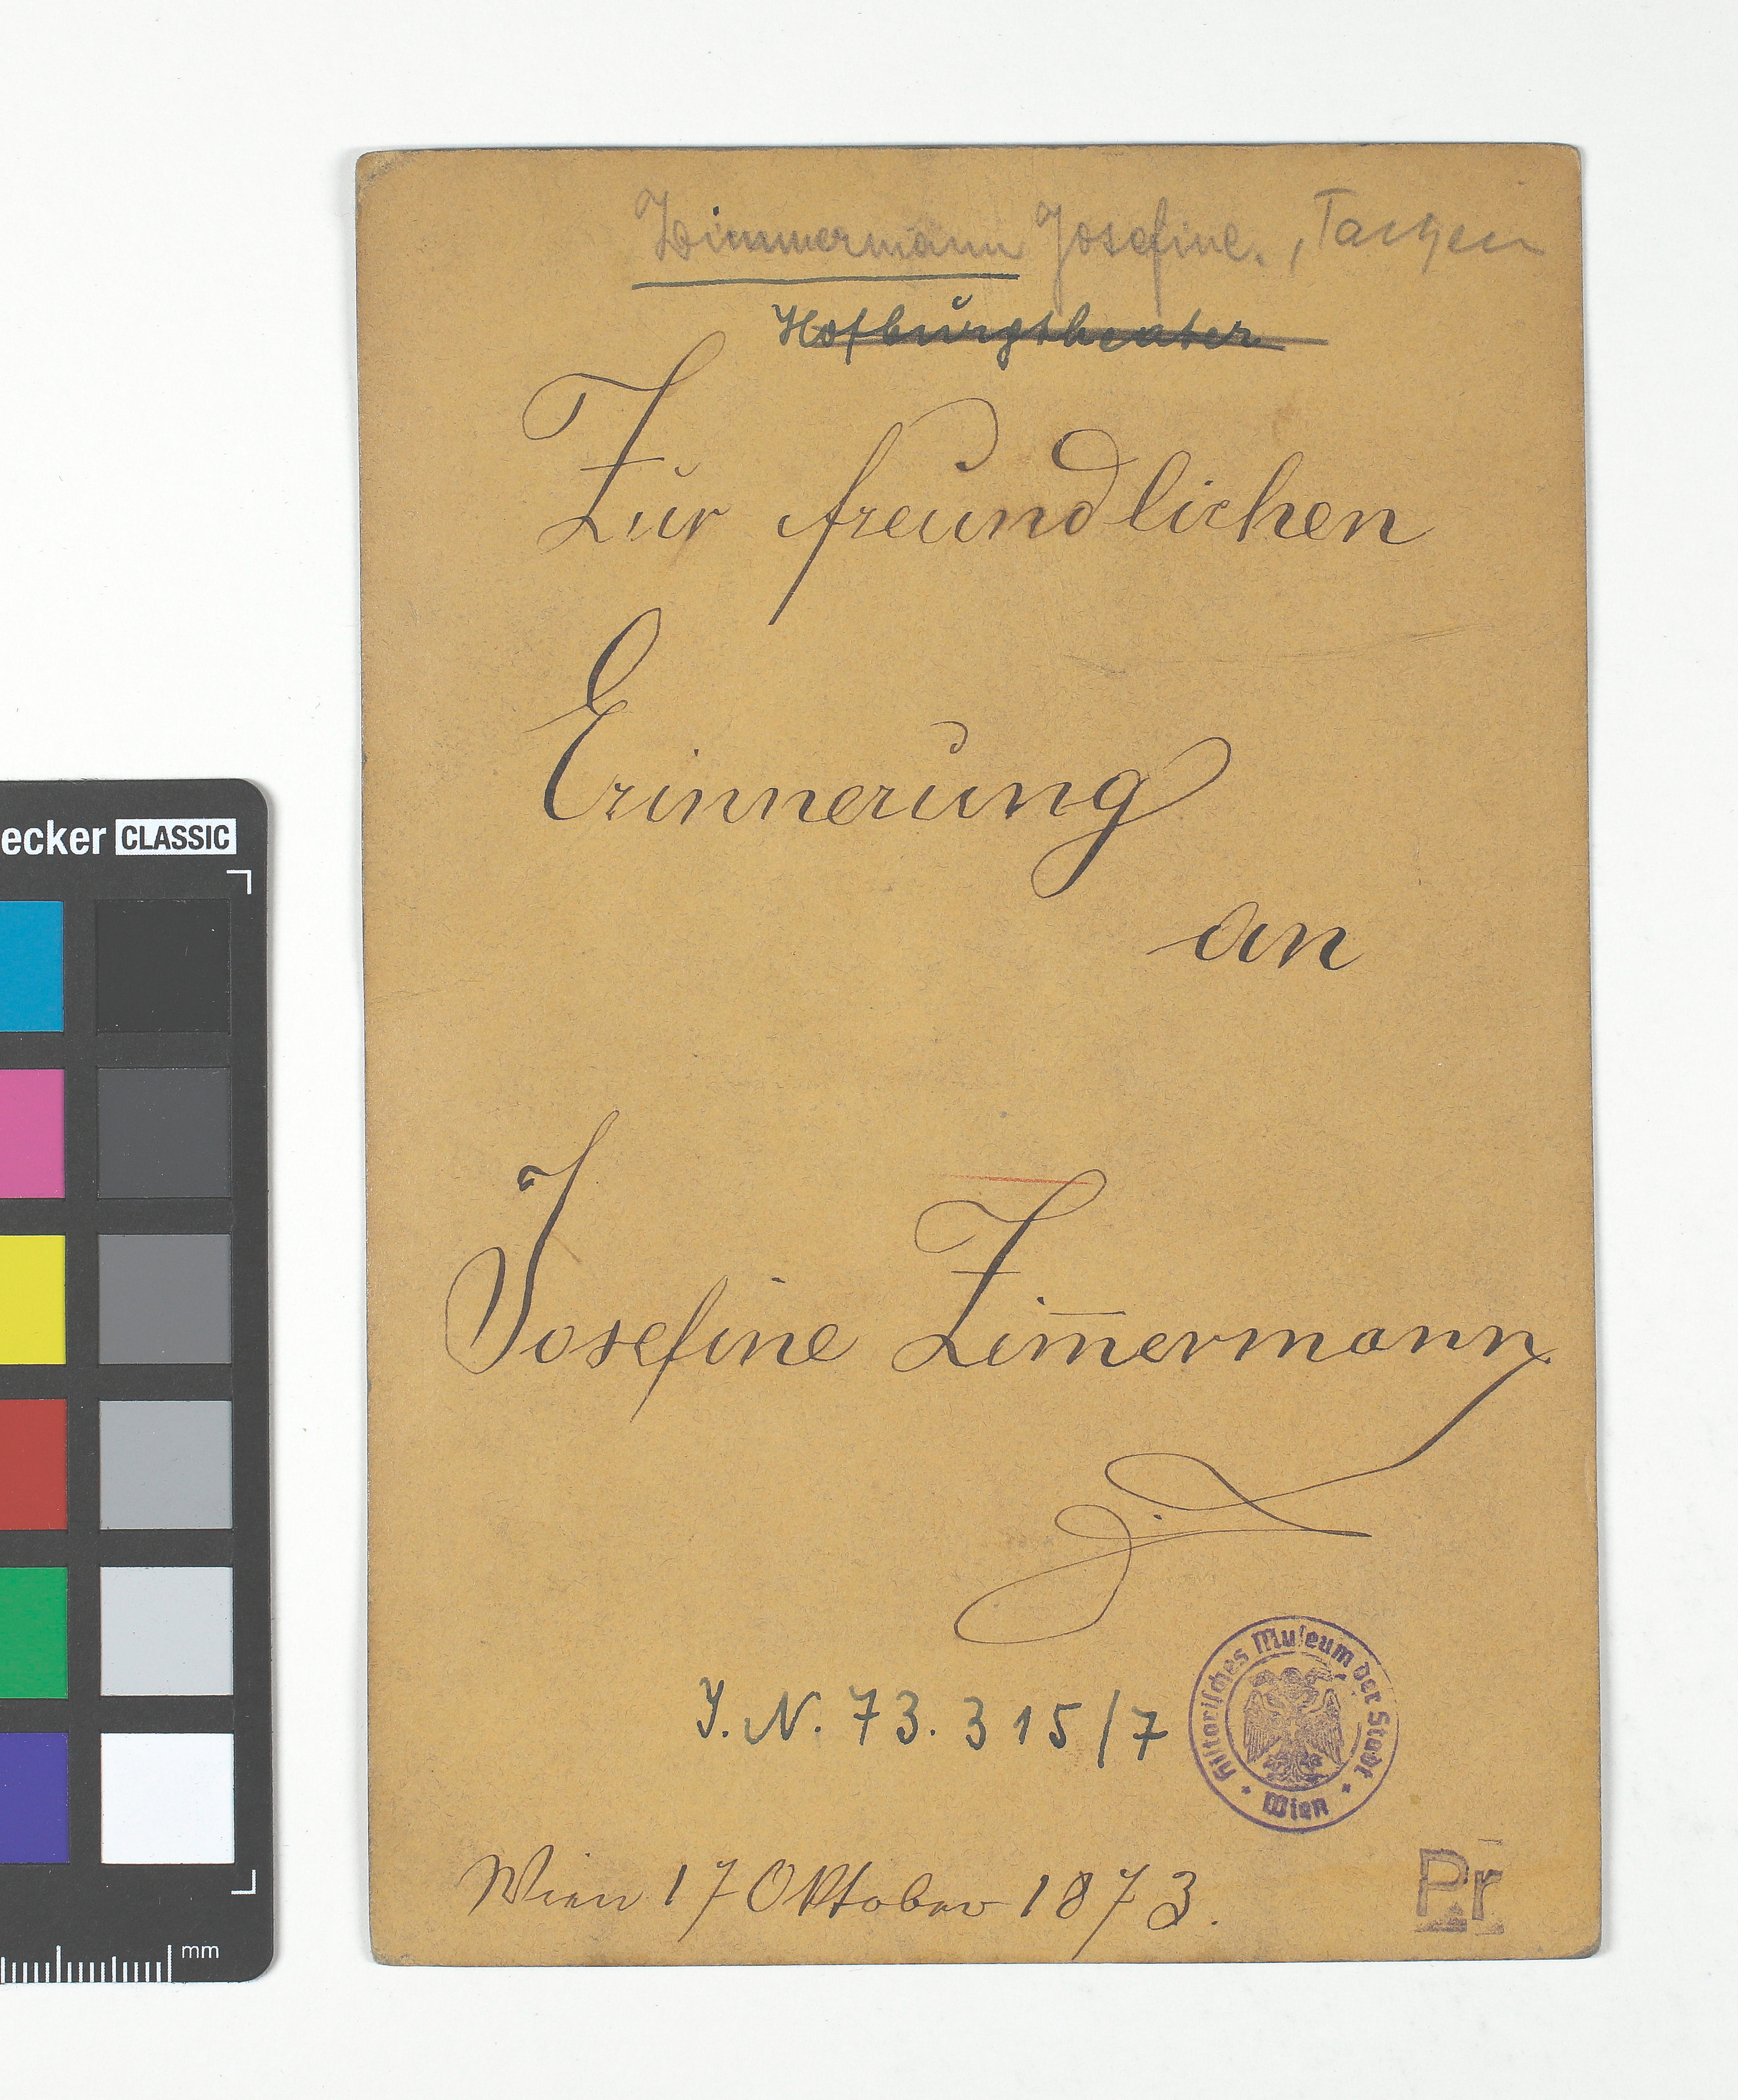 Zimmermann Josefine.,
Hofburgtheater
Zur freundlichen
Erinnerung
an
Josefine Zim̅ermann
J. N. 73.315/7
Historisches Museum der Stadt
Wien
Wien 17 Oktober 1873.
Pr
ecker CLASSIC
mm